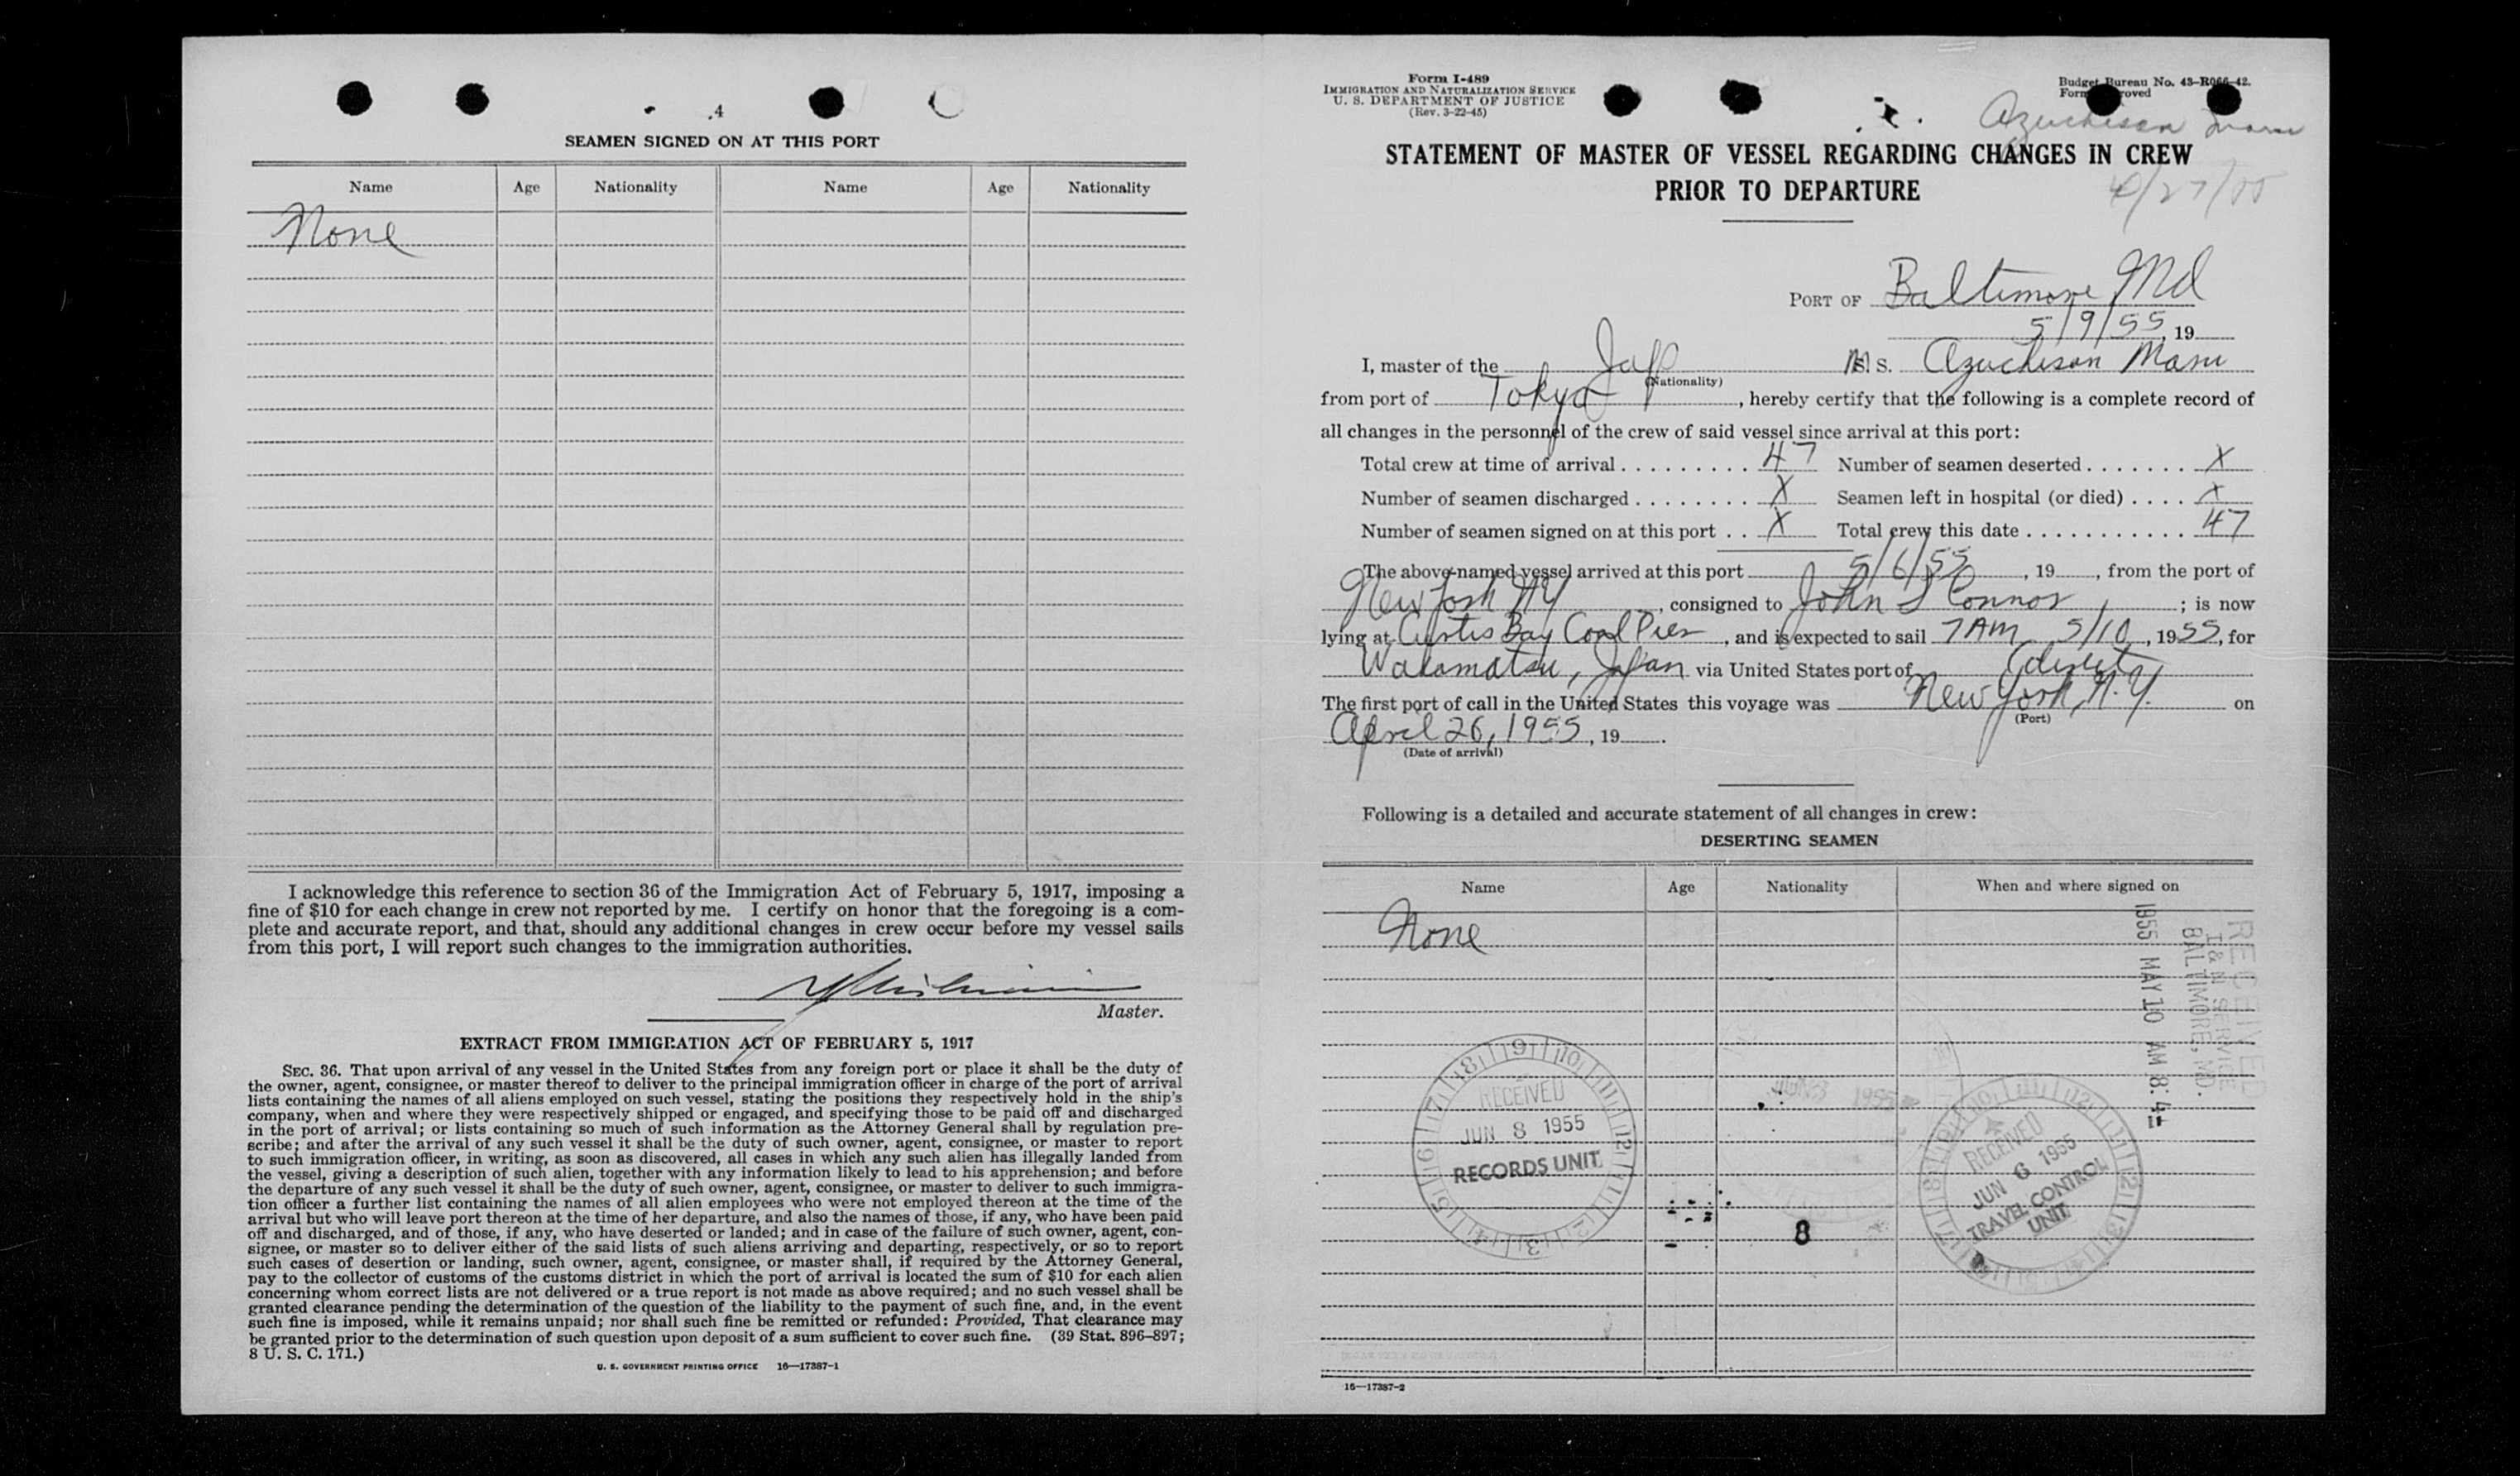 4
SEAMEN SIGNED ON AT THIS PORT
Name Age Nationality Name Age Nationality
None
I acknowledge this reference to section 36 of the Immigration Act of February 5, 1917, imposing a
fine of $10 for each change in crew not reported by me. I certify on honor that the foregoing is a com-
plete and accurate report, and that, should any additional changes in crew occur before my vessel sails
from this port, I will report such changes to the immigration authorities.
Master.
EXTRACT FROM IMMIGRATION ACT OF FEBRUARY 5, 1917
SEC. 36. That upon arrival of any vessel in the United States from any foreign port or place it shall be the duty of
the owner, agent, consignee, or master thereof to deliver to the principal immigration officer in charge of the port of arrival
lists containing the names of all aliens employed on such vessel, stating the positions they respectively hold in the ship's
company, when and where they were respectively shipped or engaged, and specifying those to be paid off and discharged
in the port of arrival; or lists containing so much of such information as the Attorney General shall by regulation pre-
scribe; and after the arrival of any such vessel it shall be the duty of such owner, agent, consignee, or master to report
to such immigration officer, in writing, as soon as discovered, all cases in which any such alien has illegally landed from
the vessel, giving a description of such alien, together with any information likely to lead to his apprehension; and before
the departure of any such vessel it shall be the duty of such owner, agent, consignee, or master to deliver to such immigra-
tion officer a further list containing the names of all alien employees who were not employed thereon at the time of the
arrival but who will leave port thereon at the time of her departure, and also the names of those, if any, who have been paid
off and discharged, and of those, if any, who have deserted or landed; and in case of the failure of such owner, agent, con-
signee, or master so to deliver either of the said lists of such aliens arriving and departing, respectively, or so to report
such cases of desertion or landing, such owner, agent, consignee, or master shall, if required by the Attorney General,
pay to the collector of customs of the customs district in which the port of arrival is located the sum of $10 for each alien
concerning whom correct lists are not delivered or a true report is not made as above required; and no such vessel shall be
granted clearance pending the determination of the question of the liability to the payment of such fine, and, in the event
such fine is imposed, while it remains unpaid; nor shall such fine be remitted or refunded: Provided, That clearance may
be granted prior to the determination of such question upon deposit of a sum sufficient to cover such fine. (39 Stat. 896–897;
8 U. S. C. 171.)
U. S. GOVERNMENT PRINTING OFFICE 16—17387-1
Form I-489
IMMIGRATION AND NATURALIZATION SERVICE
U. S. DEPARTMENT OF JUSTICE
(Rev. 3-22-45)
Budget Bureau No. 43-R066-42.
Azuchisan Maru
STATEMENT OF MASTER OF VESSEL REGARDING CHANGES IN CREW
PRIOR TO DEPARTURE
4/27/55
PORT OF Baltimore Md
5/9/55, 19
I, master of the Jap M. S. Azuchisan Maru
(Nationality)
from port of Tokyo, hereby certify that the following is a complete record of
all changes in the personnel of the crew of said vessel since arrival at this port:
Total crew at time of arrival 47 Number of seamen deserted X
Number of seamen discharged X Seamen left in hospital (or died) X
Number of seamen signed on at this port X Total crew this date 47
The above-named vessel arrived at this port 5/6/55, 19, from the port of
New York NY, consigned to John S Connor; is now
lying at Curtis Bay Coal Pier, and is expected to sail 7AM 5/10, 1955, for
Wakamatsu, Japan via United States port of (direct
The first port of call in the United States this voyage was New York, N.Y. on
(Port)
April 26, 1955, 19.
(Date of arrival)
Following is a detailed and accurate statement of all changes in crew:
DESERTING SEAMEN
Name Age Nationality When and where signed on
None
RECEIVED
I & N SERVICE
BALTIMORE, MD.
1955 MAY 10 AM 8:
RECEIVED
JUN 8 1955
RECORDS UNIT
RECEIVED
JUN 6 1955
TRAVEL CONTROL
UNIT
8
16—17387-2